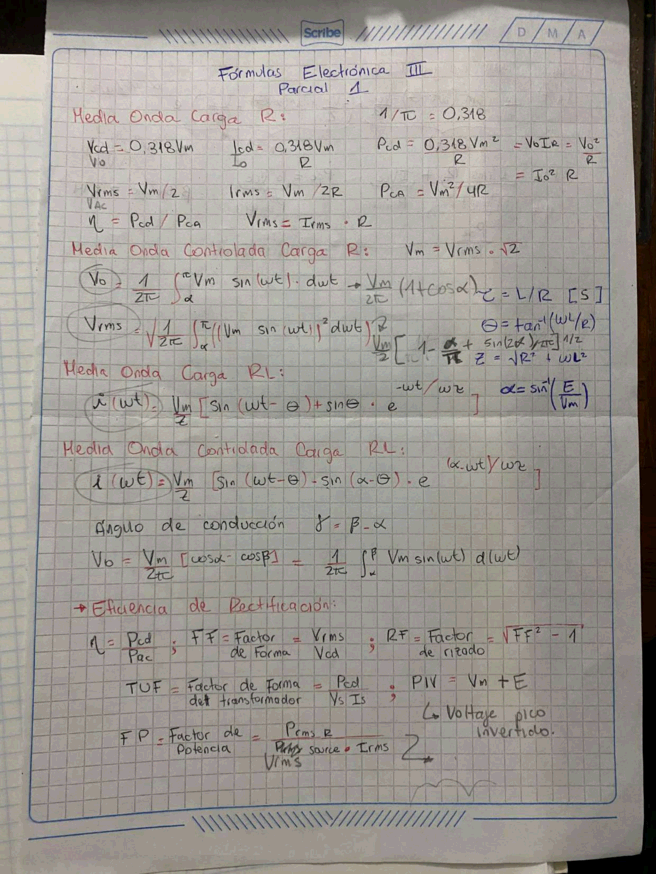 Scribe
D M A
Fórmulas Electrónica III
Parcial 1
Media Onda Carga R: 1/π = 0,318
Vcd = 0,318Vm Icd = 0,318Vm/R Pcd = 0,318Vm²/R = VoIR = Vo²/R
Vo Io = Io² R
Vrms = Vm/2 Irms = Vm/2R PCA = Vm²/4R
VAC
η = Pcd / PCA Vrms = Irms · R
Media Onda Controlada Carga R: Vm = Vrms · √2
Vo = 1/2π ∫απ Vm sin(wt) · dwt → Vm/2π (1+cosα) τ = L/R [S]
θ = tan⁻¹(WL/R)
Vrms = √1/2π ∫απ ((Vm sin(wt))² dwt) Vm/2 [1 - α/π + sin(2α)/2π]^1/2
Z = √R² + WL²
Media Onda Carga RL:
i(wt) = Vm/Z [sin(wt-θ) + sinθ · e^-wt/wτ] α = sin⁻¹(E/Vm)
Media Onda Controlada Carga RL:
i(wt) = Vm/Z [sin(wt-θ) - sin(α-θ) · e^(α-wt)/wτ]
Ángulo de conducción γ = β - α
Vo = Vm/2π [cosα - cosβ] = 1/2π ∫αβ Vm sin(wt) d(wt)
→ Eficiencia de Rectificación:
η = Pcd/Pac ; FF = Factor de Forma = Vrms/Vcd ; RF = Factor de rizado = √FF² - 1
TUF = Factor de Forma del transformador = Pcd/Vs Is ; PIV = Vm + E
↳ Voltaje pico invertido.
FP = Factor de Potencia = Prms R/source · Irms
Vrms